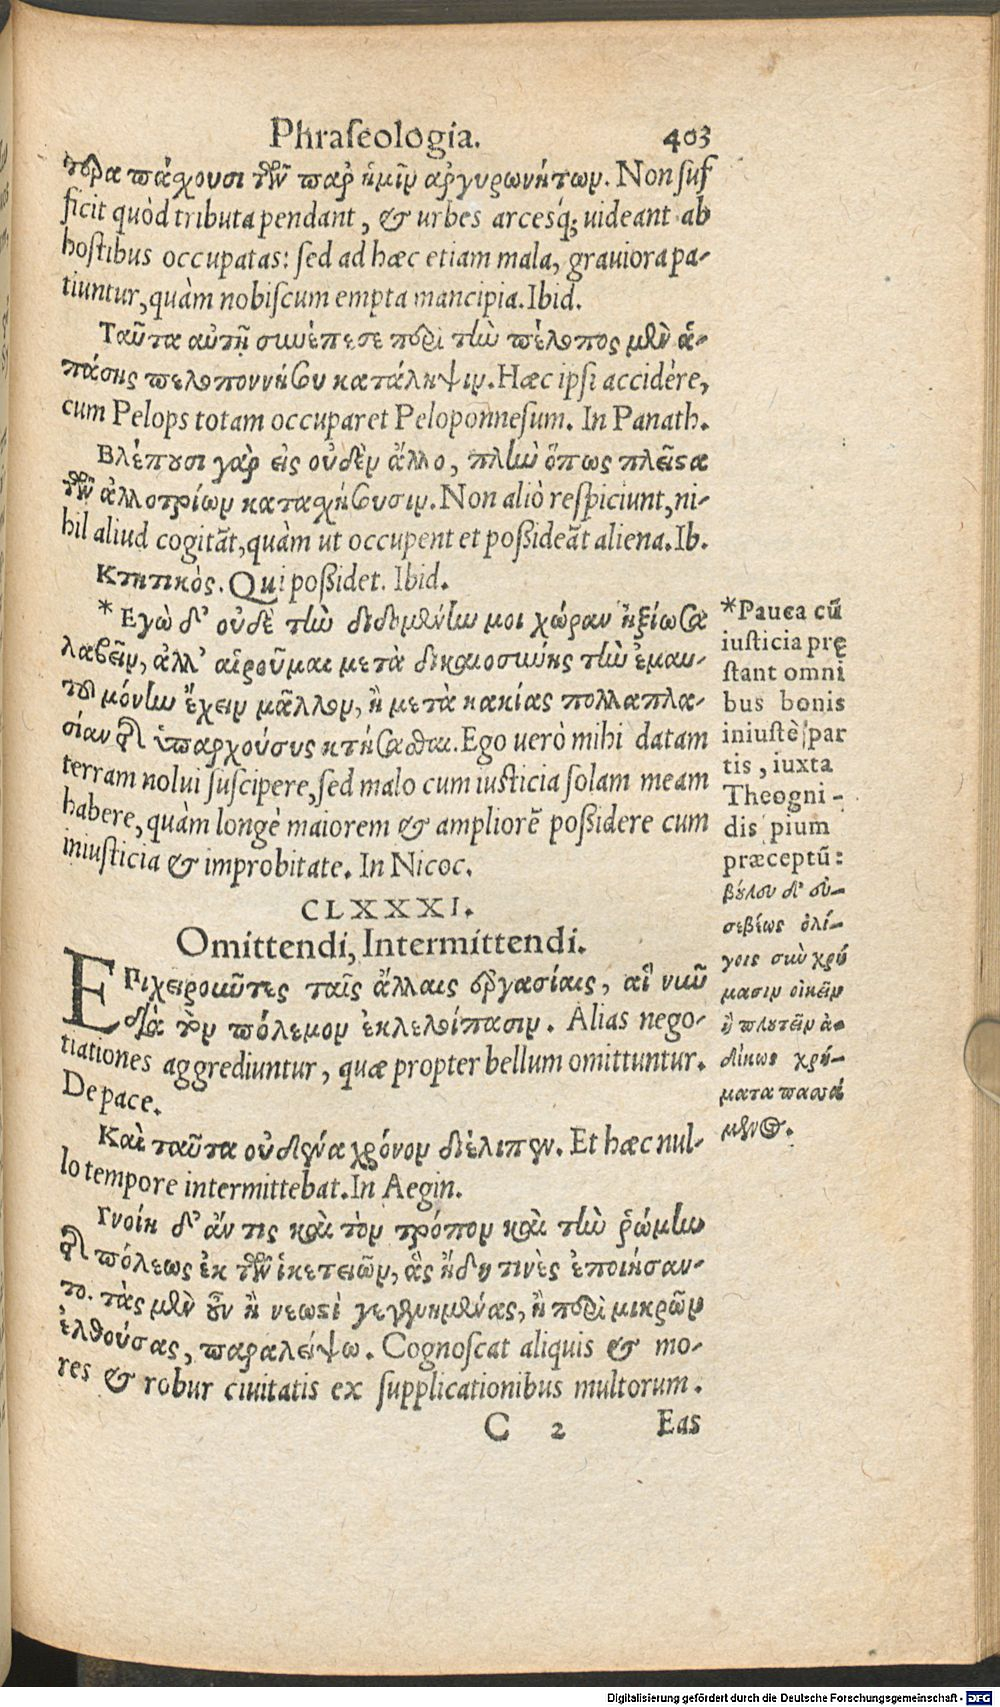 Phraseologia. 403
τερα πάχουσι τῶν παρ' ἡμῖν ἀργυρωνήτων. Non suf
ficit quòd tributa pendant, & urbes arcesq́; uideant ab
hostibus occupatas: sed ad hæc etiam mala, grauiora pa-
tiuntur, quàm nobiscum empta mancipia. Ibid.
Ταῦτα αὐτῇ συνέπεσε περὶ τὴν πέλοπος μὲν ἁ-
πάσης πελοποννήσου κατάληψιν. Hæc ipsi accidêre,
cum Pelops totam occuparet Peloponnesum. In Panath.
Βλέπουσι γὰρ εἰς οὐδὲν ἄλλο, πλὴν ὅπως πλεῖστα
τῶν ἀλλοτρίων κατασχήσουσιν. Non aliò respiciunt, ni-
hil aliud cogitãt, quàm ut occupent et possideãt aliena. Ib.
Κτητικὸς. Qui possidet. Ibid.
* Εγὼ δ' οὐδὲ τὴν διδομένην μοι χώραν ἠξίωσα
λαβεῖν, ἀλλ' αἱροῦμαι μετὰ δικαιοσύνης τὴν ἐμαυ-
τοῦ μόνην ἔχειν μᾶλλον, ἢ μετὰ κακίας πολλαπλα-
σίαν τῆς ὑπαρχούσης κτήσασθαι. Ego uerò mihi datam
terram nolui suscipere, sed malo cum iusticia solam meam
habere, quàm longè maiorem & ampliorẽ possidere cum
iniusticia & improbitate. In Nicoc.
*Pauca cũ
iusticia prę
stant omni
bus bonis
iniustè par
tis, iuxta
Theogni-
dis pium
præceptũ:
βούλου δ' εὐ-
σεβέως ὀλί-
γοις σὺν χρή
μασιν οἰκεῖν
ἢ πλουτεῖν ἀ-
δίκως χρή-
ματα πασσά
μενος.
CLXXXI.
Omittendi, Intermittendi.
ΕΠιχειροῦντες ταῖς ἄλλαις ἐργασίαις, αἳ νῦν
διὰ τὸν πόλεμον ἐκλελοίπασιν. Alias nego-
tiationes aggrediuntur, quæ propter bellum omittuntur.
De pace.
Καὶ ταῦτα οὐδένα χρόνον διέλιπεν. Et hæc nul-
lo tempore intermittebat. In Aegin.
Γνοίη δ' ἄν τις καὶ τὸν τρόπον καὶ τὴν ῥώμην
τῆς πόλεως ἐκ τῶν ἱκετειῶν, ἃς ἤδη τινὲς ἐποιήσαν-
το. τὰς μὲν οὖν ἢ νεωστὶ γεγενημένας, ἢ περὶ μικρῶν
ἐλθούσας, παραλείψω. Cognoscat aliquis & mo-
res & robur ciuitatis ex supplicationibus multorum.
C 2 Eas
Digitalisierung gefördert durch die Deutsche Forschungsgemeinschaft - DFG